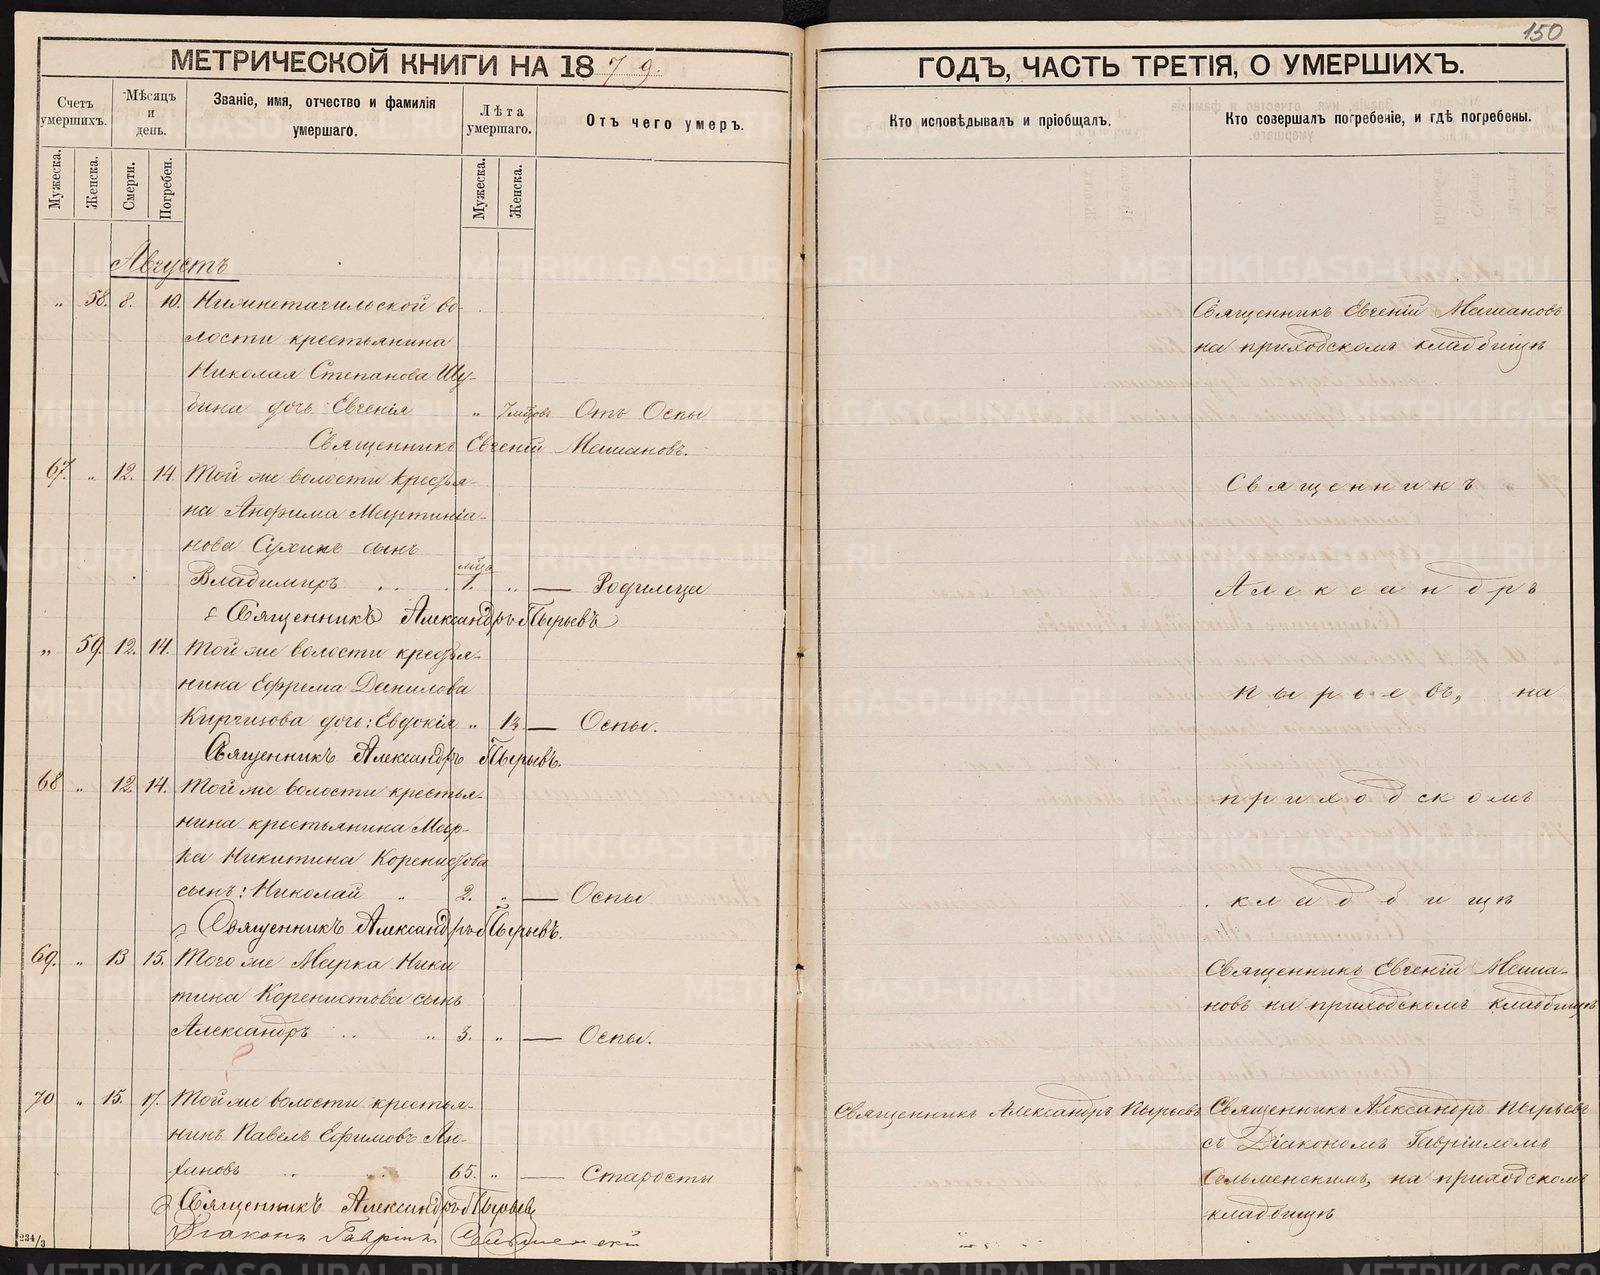 150
МЕТРИЧЕСКОЙ КНИГИ НА 1879.
ГОДЪ, ЧАСТЬ ТРЕТІЯ, О УМЕРШИХЪ.
Счетъ умершихъ.
Мѣсяцъ и день.
Званіе, имя, отчество и фамилія умершаго.
Лѣта умершаго.
Отъ чего умеръ.
Кто исповѣдывалъ и пріобщалъ.
Кто совершалъ погребеніе, и гдѣ погребены.
Мужеска.
Женска.
Смерти.
Погребен.
Мужеска.
Женска.
Августъ
" 58. 8. 10. Нижнетагильской во-
лости крестьянина
Николая Степанова Шу-
бина дочь Евгенія " 7 мѣцовъ Отъ Оспы
Священникъ Евгеній Машановъ.
Священникъ Евгеній Машановъ
на приходскомъ кладбищѣ
67. " 12. 14. Той же волости крестья-
на Анфима Мартиніа-
нова Сухихъ сынъ
Владимиръ мѣца 1. " — Родимца
Священникъ Александръ Пырьевъ
" 59. 12. 14. Той же волости крестья-
нина Ефрема Данилова
Кирпикова дочь: Евдокія " 1½ — Оспы.
Священникъ Александръ Пырьевъ.
68 " 12. 14. Той же волости крестья-
нина крестьянина Мар-
ка Никитина Коренистова
сынъ: Николай " 2. " — Оспы
Священникъ Александръ Пырьевъ.
Священникъ
Александръ
Пырьевъ, на
приходскомъ
кладбищѣ
69. " 13 15. Того же Марка Ники
тина Коренистова сынъ
Александръ " 3. " — Оспы.
Священникъ Евгеній Маша-
новъ на приходскомъ кладбищѣ
70 " 15. 17. Той же волости крестья-
нинъ Павелъ Ефимовъ
65. " — Старости
Священникъ Александръ Пырьевъ
Діаконъ Гавріилъ Сельменскій
Священникъ Александръ Пырьевъ
Священникъ Александръ Пырьевъ
съ Діакономъ Гавріиломъ
Сельменскимъ, на приходскомъ
кладбищѣ
234/3
METRIKI.GASO-URAL.RU